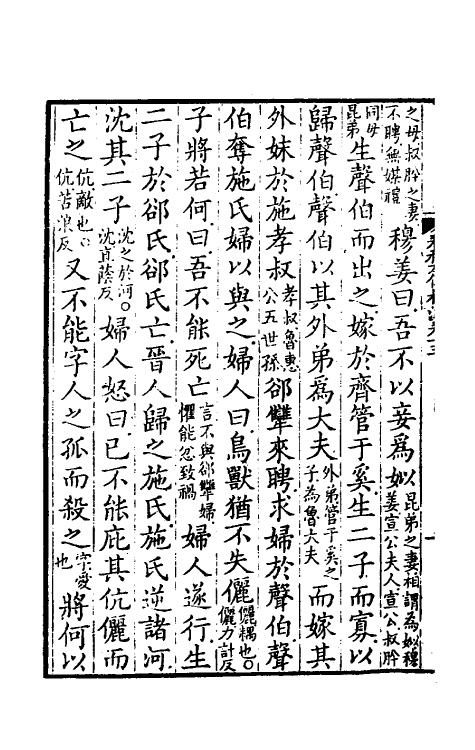 之母叔肸之妻不聘無媒禮穆姜曰吾不以妾為姒昆弟之妻相謂為姒穆姜宣公夫人宣公叔肸
同母昆弟生聲伯而出之嫁於齊管于奚生二子而寡以
歸聲伯聲伯以其外弟為大夫外弟管于奚之子為魯大夫而嫁其
外妹於施孝叔孝叔魯惠公五世孫郤犨來聘求婦於聲伯聲
伯奪施氏婦以與之婦人曰鳥獸猶不失儷儷耦也○儷力計反
子將若何曰吾不能死亡言不與郤犨婦懼能忿致禍婦人遂行生
二子於郤氏郤氏亡晉人歸之施氏施氏逆諸河
沈其二子沈之於河○沈直蔭反婦人怒曰已不能庇其伉儷而
亡之伉敵也○伉苦浪反又不能字人之孤而殺之字愛也將何以